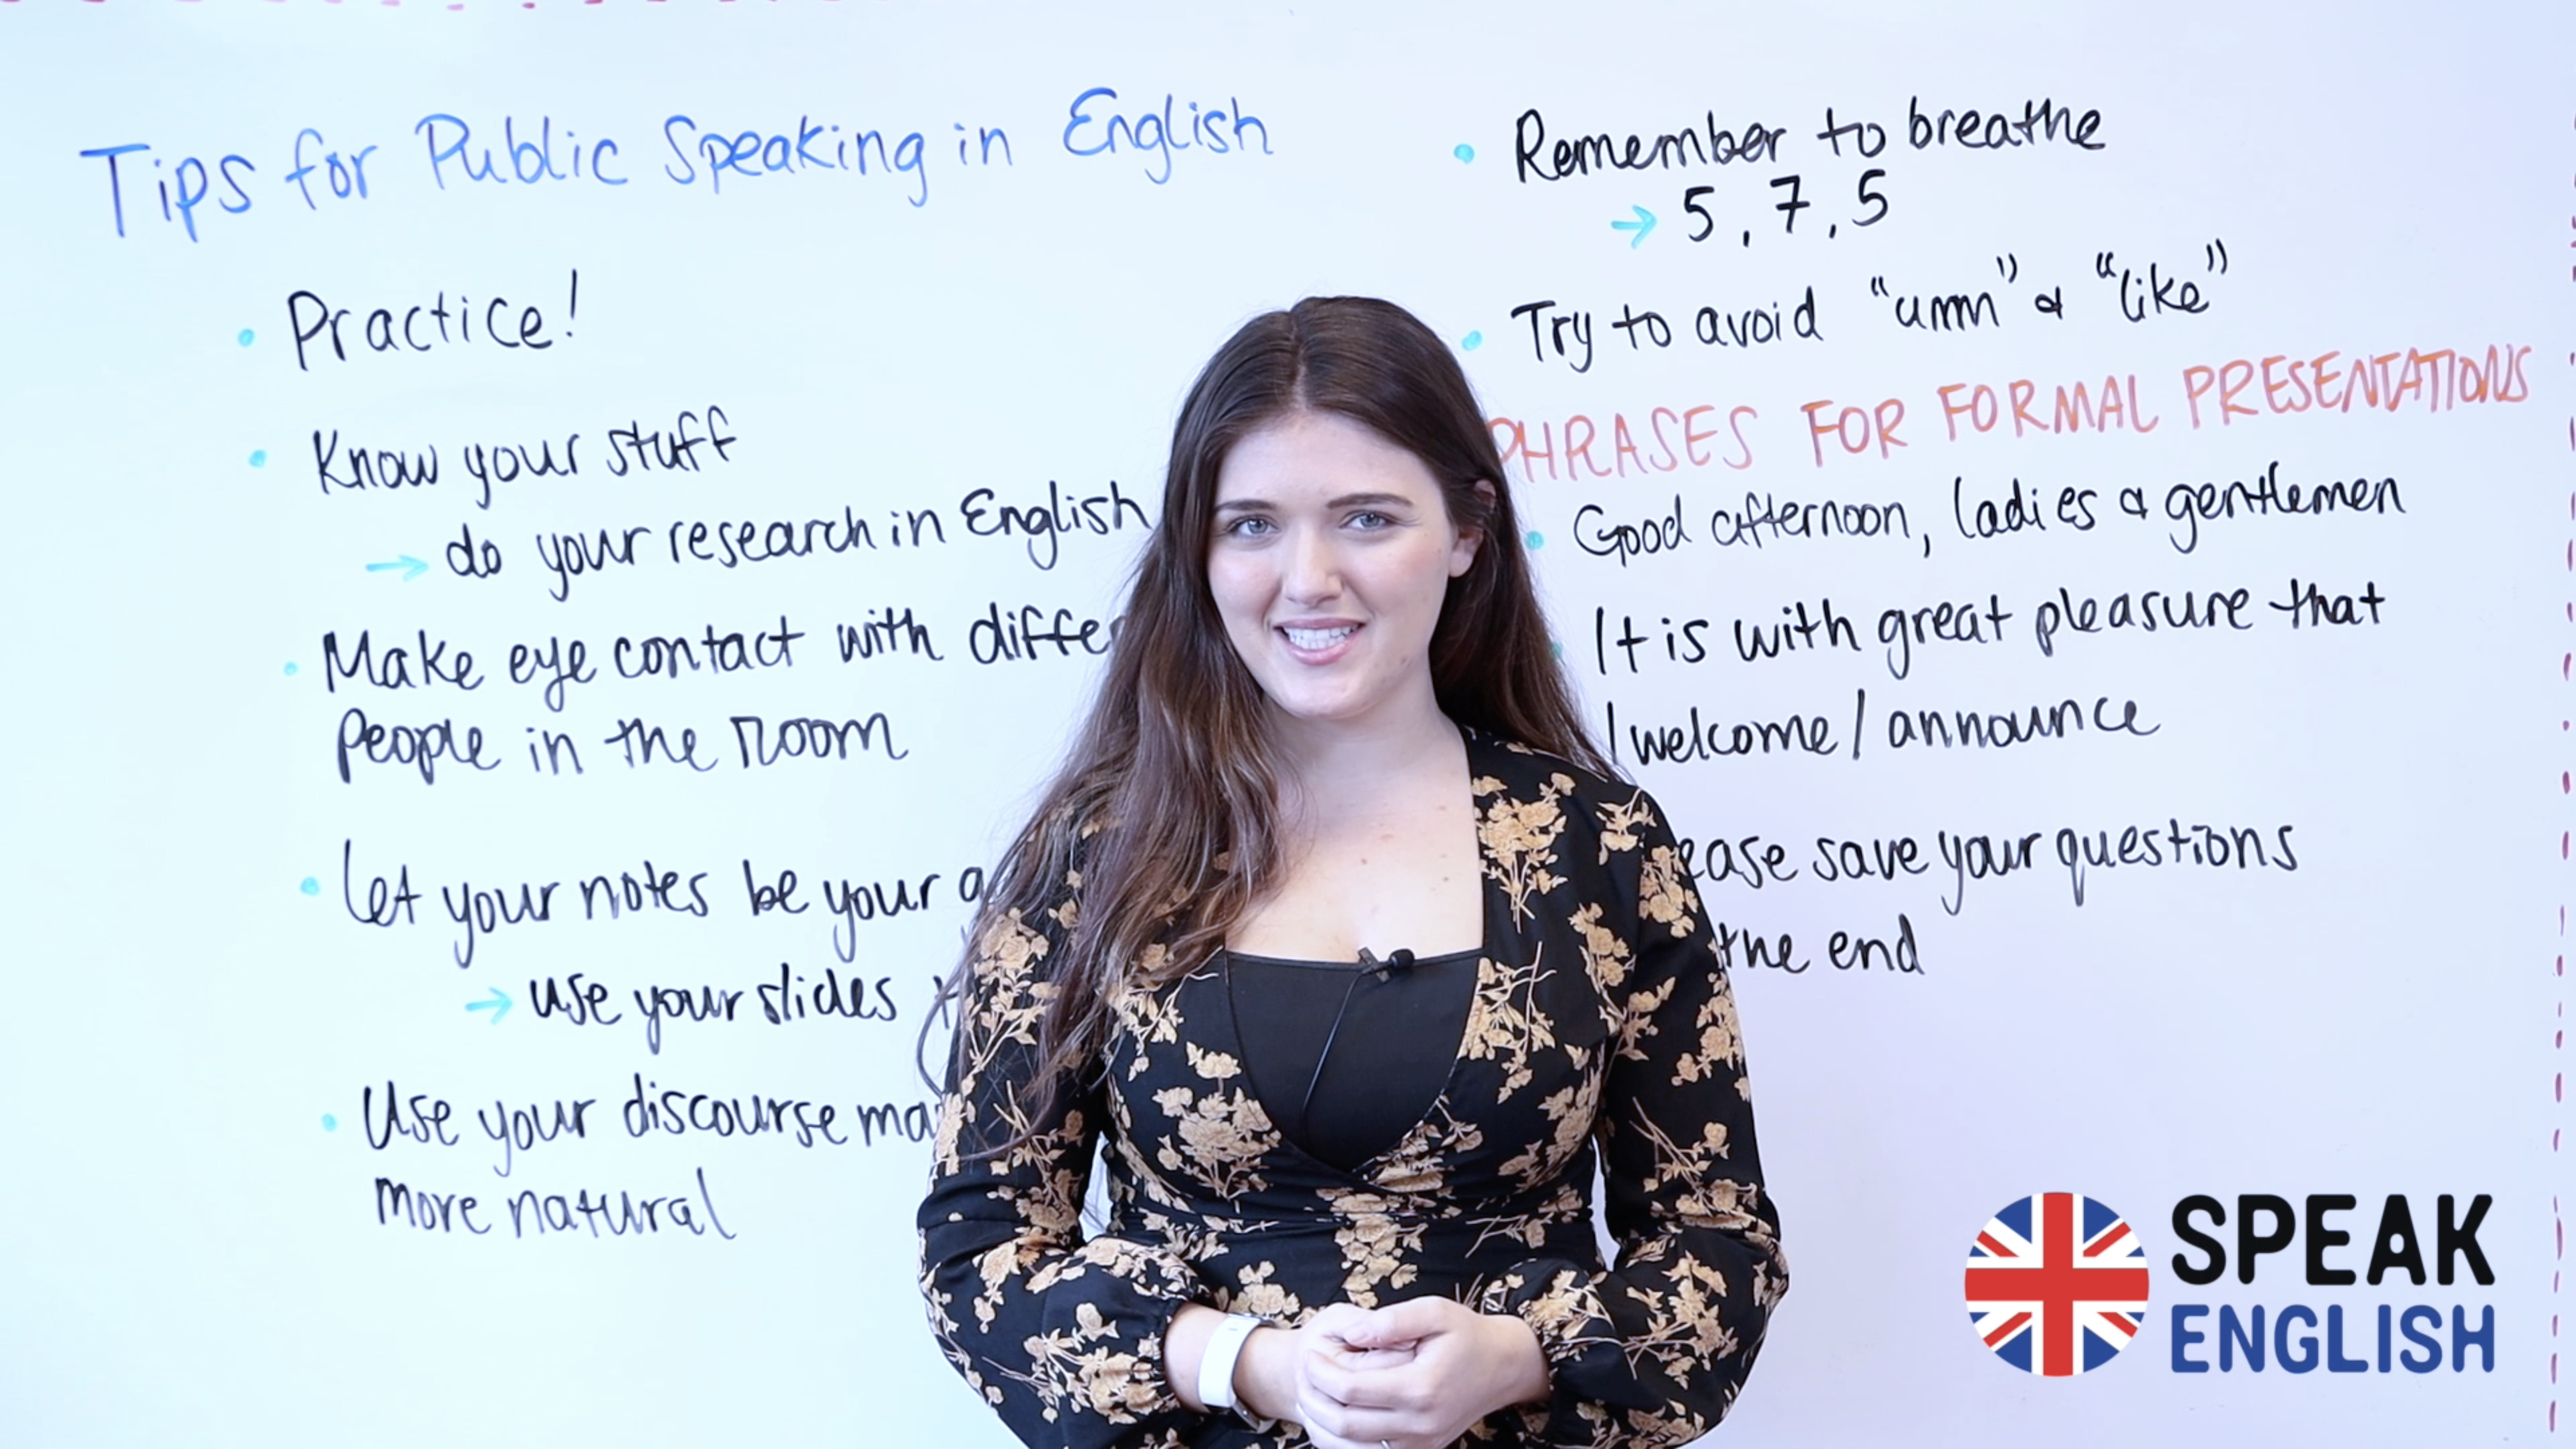 Tips for Public Speaking in English
• Practice!
• Know your stuff
→ do your research in English
• Make eye contact with
People in the room
• Let your notes be your
→ use your slides
• Use your discourse
more natural
• Remember to breathe
→ 5, 7, 5
• Try to avoid "umm" & "like"
PHRASES FOR FORMAL PRESENTATIONS
• Good afternoon, ladies & gentlemen
• It is with great pleasure that
I welcome / announce
save your questions
the end
SPEAK
ENGLISH